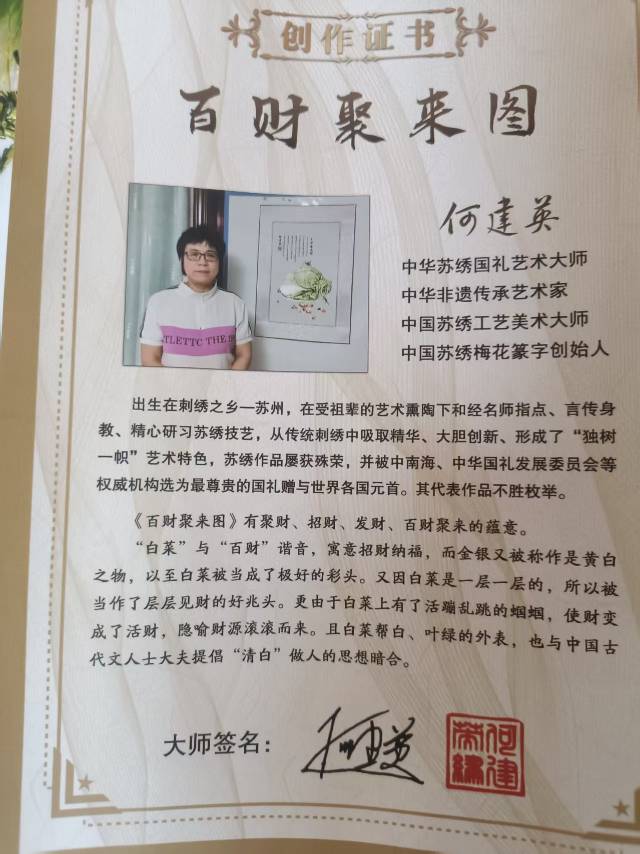 创作证书
百财聚来图
何建英
中华苏绣国礼艺术大师
中华非遗传承艺术家
中国苏绣工艺美术大师
中国苏绣梅花篆字创始人
TLETTC THE D
出生在刺绣之乡—苏州，在受祖辈的艺术熏陶下和经名师指点、言传身
教、精心研习苏绣技艺，从传统刺绣中吸取精华、大胆创新、形成了“独树
一帜”艺术特色，苏绣作品屡获殊荣，并被中南海、中华国礼发展委员会等
权威机构选为最尊贵的国礼赠与世界各国元首。其代表作品不胜枚举。
《百财聚来图》有聚财、招财、发财、百财聚来的蕴意。
“白菜”与“百财”谐音，寓意招财纳福，而金银又被称作是黄白
之物，以至白菜被当成了极好的彩头。又因白菜是一层一层的，所以被
当作了层层见财的好兆头。更由于白菜上有了活蹦乱跳的蝈蝈，使财变
成了活财，隐喻财源滚滚而来。且白菜帮白、叶绿的外表，也与中国古
代文人士大夫提倡“清白”做人的思想暗合。
大师签名：